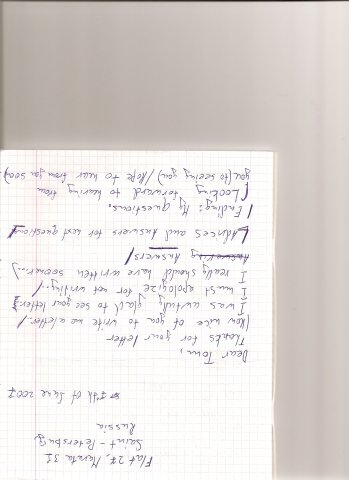 Flat 27, Marata 31
Saint-Petersburg
Russia
7th of June 2007
Dear Tom,
Thanks for your letter
(how nice of you to write me a letter!
I was awfully glad to see your letter)
I must apologize for not writing...!
I really should have written sooner...
Answering Answers
Advices and answers for and questions
Ending: My questions.
Looking forward to hearing from
you (to seeing you) / Hope to hear from you soon)